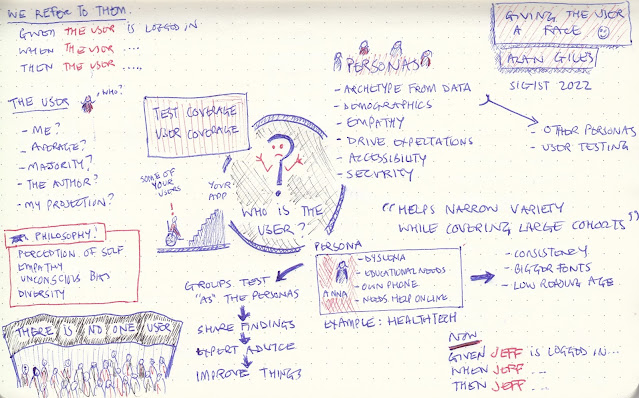 WE REFER TO THEM.
GIVEN THE USER IS LOGGED IN
WHEN THE USER ...
THEN THE USER ....,
THE USER
WHO?
- ME?
- AVERAGE?
- MAJORITY?
- THE AUTHOR?
- MY PROJECTION?
PHILOSOPHY!
PERCEPTION OF SELF
EMPATHY
UNCONSCIOUS BIAS
DIVERSITY
THERE IS NO ONE USER
TEST COVERAGE
USER COVERAGE
SOME OF
YOUR
USERS
YOUR
APP
?
WHO IS THE
USER?
PERSONAS
- ARCHETYPE FROM DATA
- DEMOGRAPHICS
- EMPATHY
- DRIVE EXPECTATIONS
- ACCESSIBILITY
- SECURITY
GIVING THE USER
A FACE
ALAN GILES
SIGIST 2022
- OTHER PERSONAS
- USER TESTING
"HELPS NARROW VARIETY
WHILE COVERING LARGE COHORTS"
PERSONA
ANNA
- DYSLEXIA
- EDUCATIONAL NEEDS
- OWN PHONE
- NEEDS HELP ONLINE
EXAMPLE: HEALTHTECH
- CONSISTENCY
- BIGGER FONTS
- LOW READING AGE
GROUPS TEST
"AS" THE PERSONAS
SHARE FINDINGS
EXPERT ADVICE
IMPROVE THINGS
NOW
GIVEN JEFF IS LOGGED IN...
WHEN JEFF ...
THEN JEFF ...